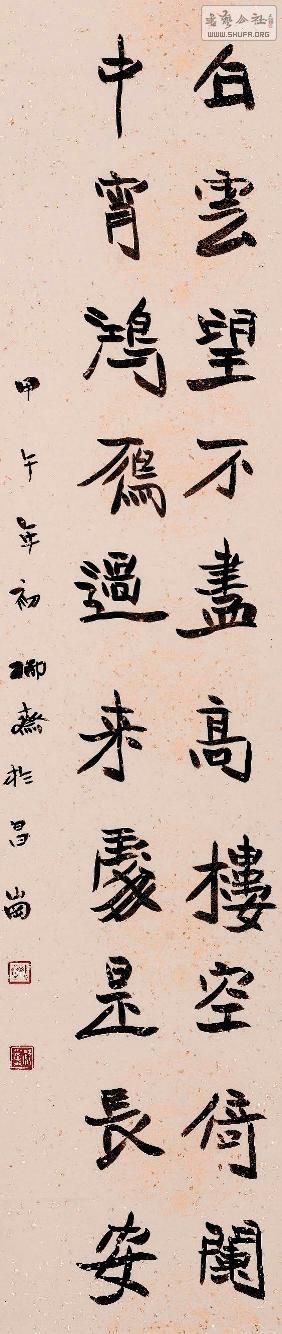 白雲望不盡高樓空倚闌
中宵鴻鴈過来處是長安
甲午年初聊齋於昌崗
书艺公社
WWW.SHUFA.ORG